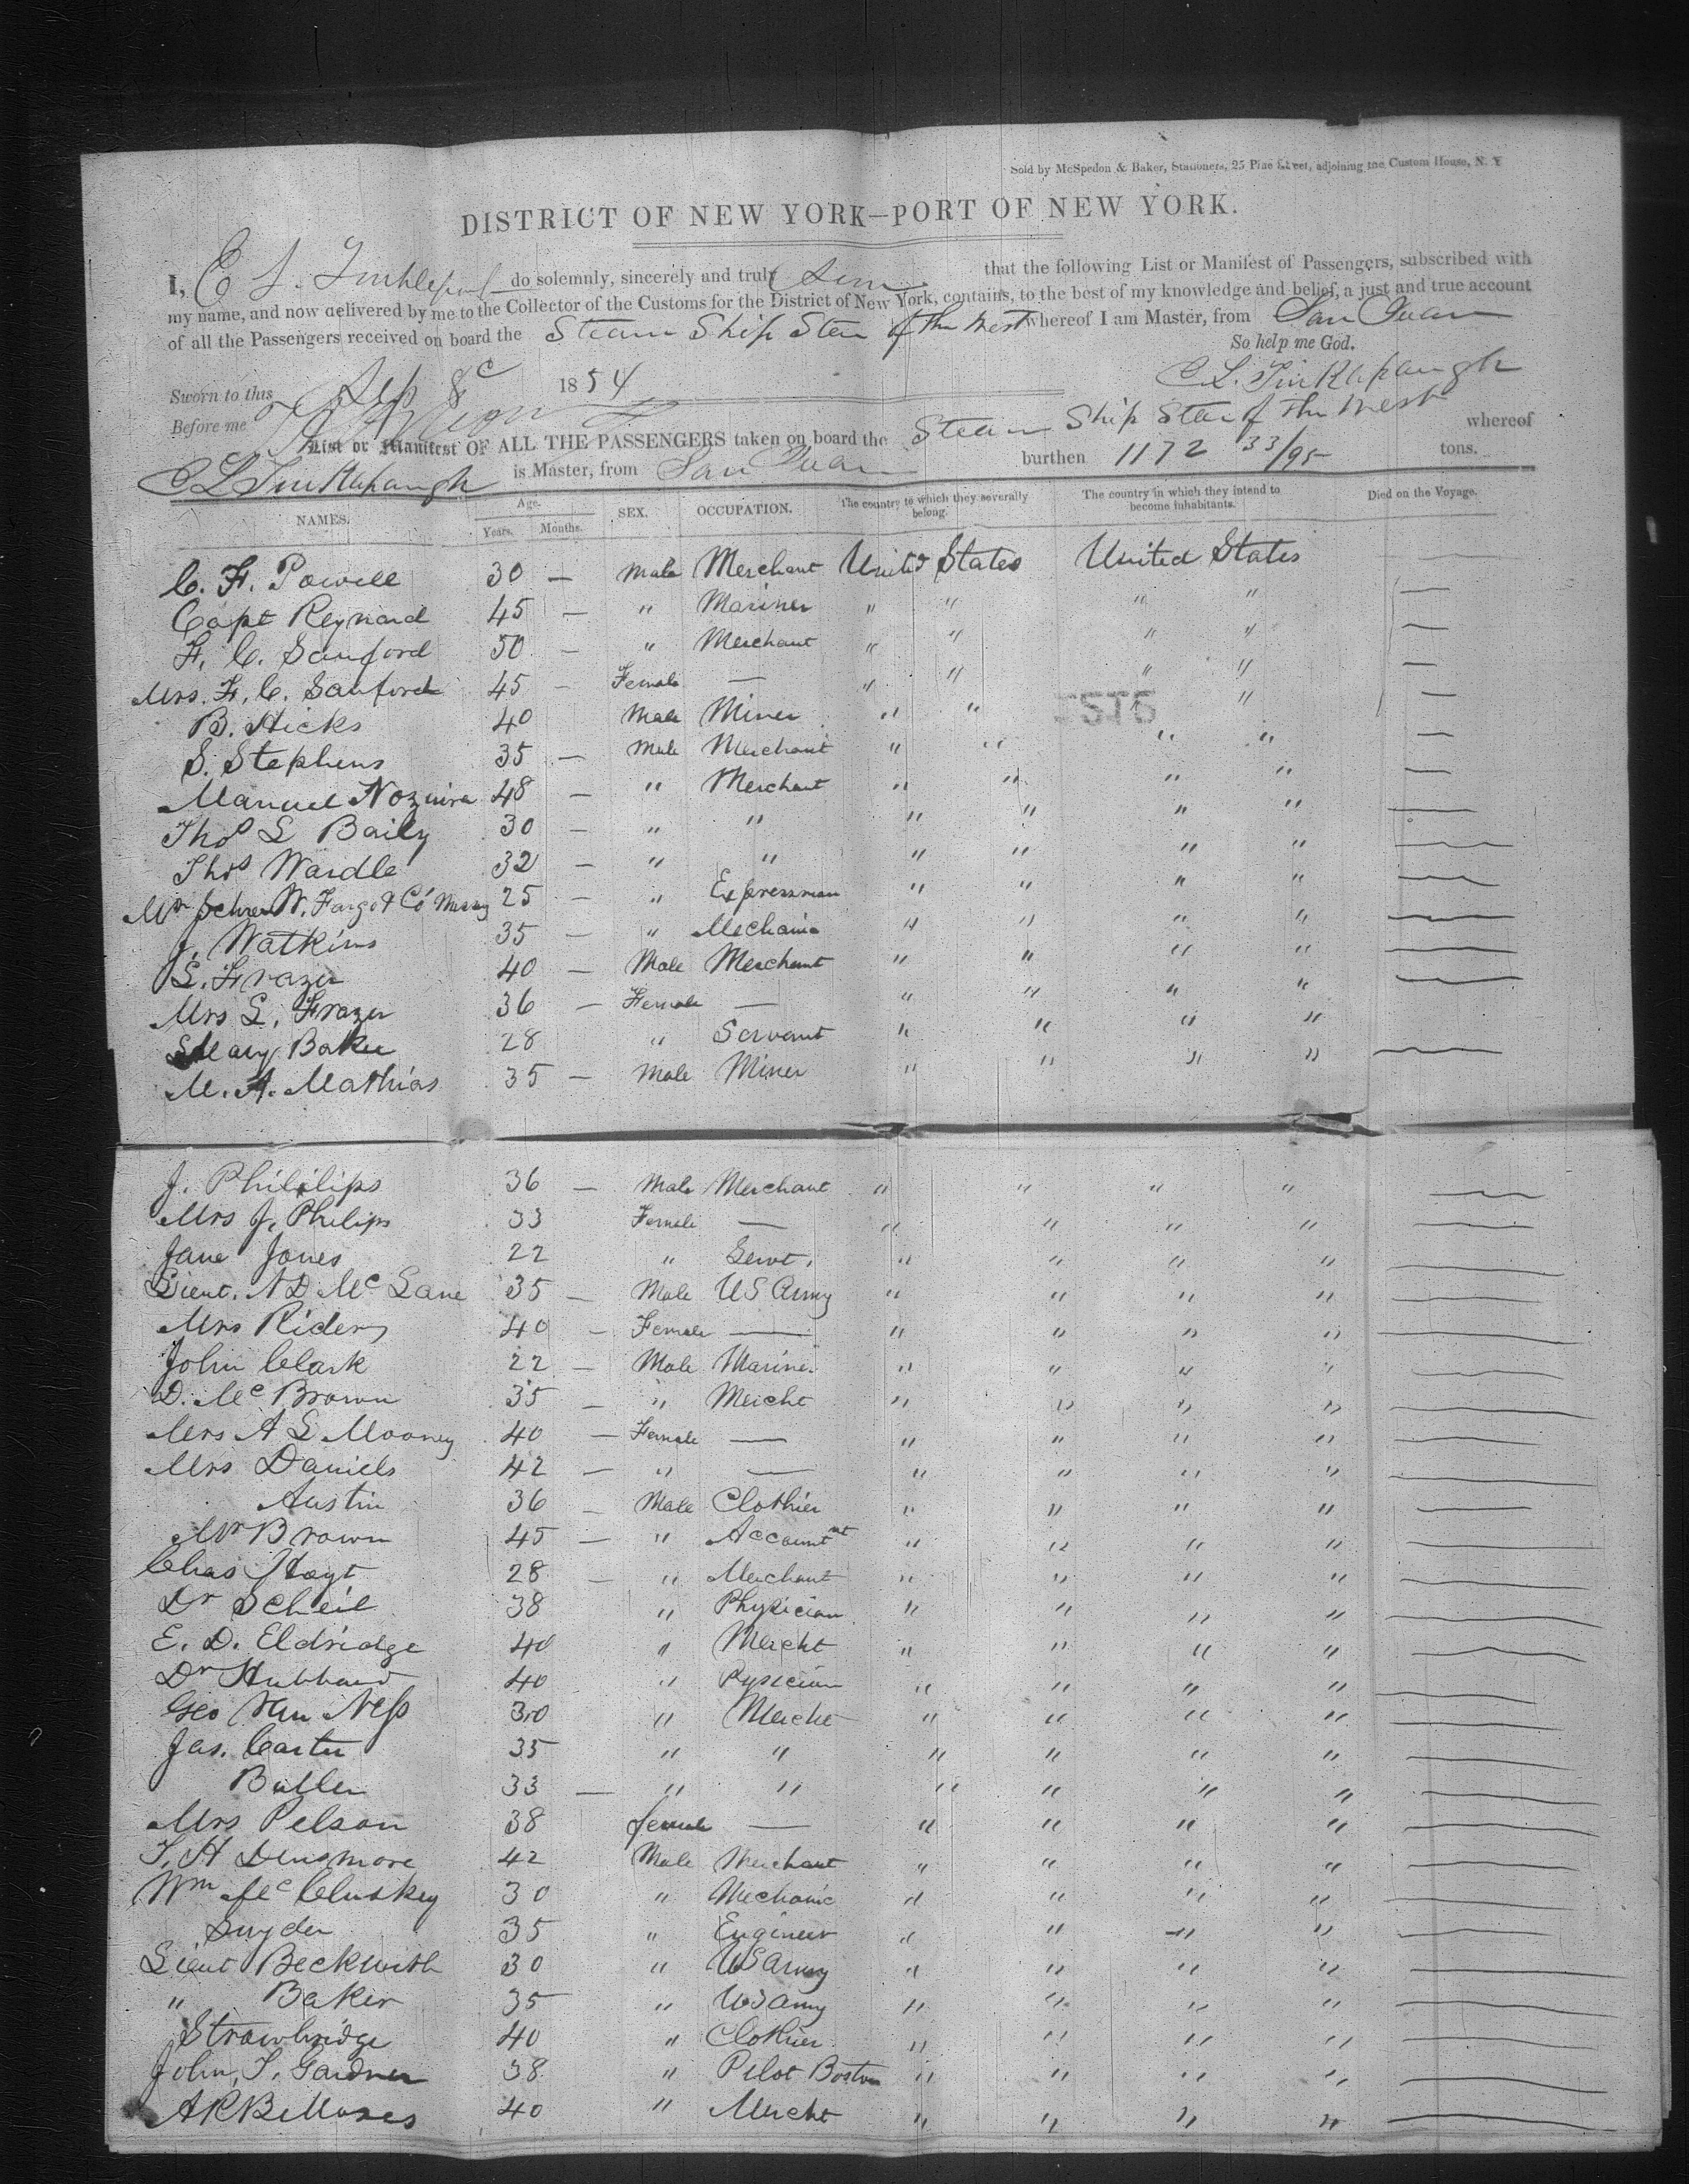 Sold by McSpedon & Baker, Stationers, 25 Pine Street, adjoining the Custom House, N. Y
DISTRICT OF NEW YORK—PORT OF NEW YORK.
I, do solemnly, sincerely and truly that the following List or Manifest of Passengers, subscribed with
my name, and now delivered by me to the Collector of the Customs for the District of New York, contains, to the best of my knowledge and belief, a just and true account
of all the Passengers received on board the Steam Ship Star of the West whereof I am Master, from San Juan
So help me God.
Sworn to this Sep 8 1854 C L. Tinklepaugh
Before me
List or Manifest OF ALL THE PASSENGERS taken on board the Steam Ship Star of the West whereof
C L Tinklepaugh is Master, from San Juan burthen 1172 33/95 tons.
NAMES. Age. Years. Months. SEX. OCCUPATION. The country to which they severally belong. The country in which they intend to become inhabitants. Died on the Voyage.
C. F. Powell 30 — Male Merchant United States United States —
Capt Reynard 45 — " Mariner " " " " —
F. C. Sanford 50 — " Merchant " " " " —
Mrs. F. C. Sanford 45 — Female — " " " " —
B. Hicks 40 Male Miner " " " —
S. Stephens 35 — Male Merchant " " " " —
Manuel 48 — " Merchant " " " " —
Thos S Baily 30 — " " " " " " —
Thos Wardle 32 — " " " " " " —
Mr W. Fargo & Co 25 — " Expressman " " " " —
J. Watkins 35 — " Mechanic " " " " —
S. Frazer 40 — Male Merchant " " " " —
Mrs S. Frazer 36 — Female — " " " " —
Mary Baker 28 " Servant " " " "
M. A. Mathias 35 — Male Miner " " " " —
J. Philips 36 — Male Merchant " " " " —
Mrs J. Philips 33 Female — " " " " —
Jane Jones 22 " Servt. " " " " —
Lieut. N D McLane 35 — Male US Army " " " " —
Mrs Riders 40 — Female — " " " " —
John Clark 22 — Male Marine " " " " —
D. Mc Brown 35 — " Mercht " " " " —
Mrs A L Mooney 40 — Female — " " " " —
Mrs Daniels 42 — " — " " " " —
Austin 36 — Male Clothier " " " " —
Mr Brown 45 — " Accountant " " " " —
Chas Hoyt 28 — " Merchant " " " " —
Dr Scheil 38 " Physician " " " " —
E. D. Eldridge 40 " Mercht " " " " —
Dr Hubbard 40 " Pysician " " " " —
Geo Van Ness 30 " Mercht " " " " —
Jas. Carter 35 " " " " " " —
Butler 33 — " " " " " " —
Mrs Pelson 38 female — " " " " —
T. H Densmore 42 Male Merchant " " " " —
Wm McCluskey 30 " Mechanic " " " " —
Snyder 35 " Engineer " " " " —
Lieut Beckwith 30 " US Army " " " " —
" Baker 35 " US Army " " " " —
Strawbridge 40 " Clothier " " " " —
John, T. Gardner 38 " Pilot Boston " " " " —
40 " Mercht " " " " —